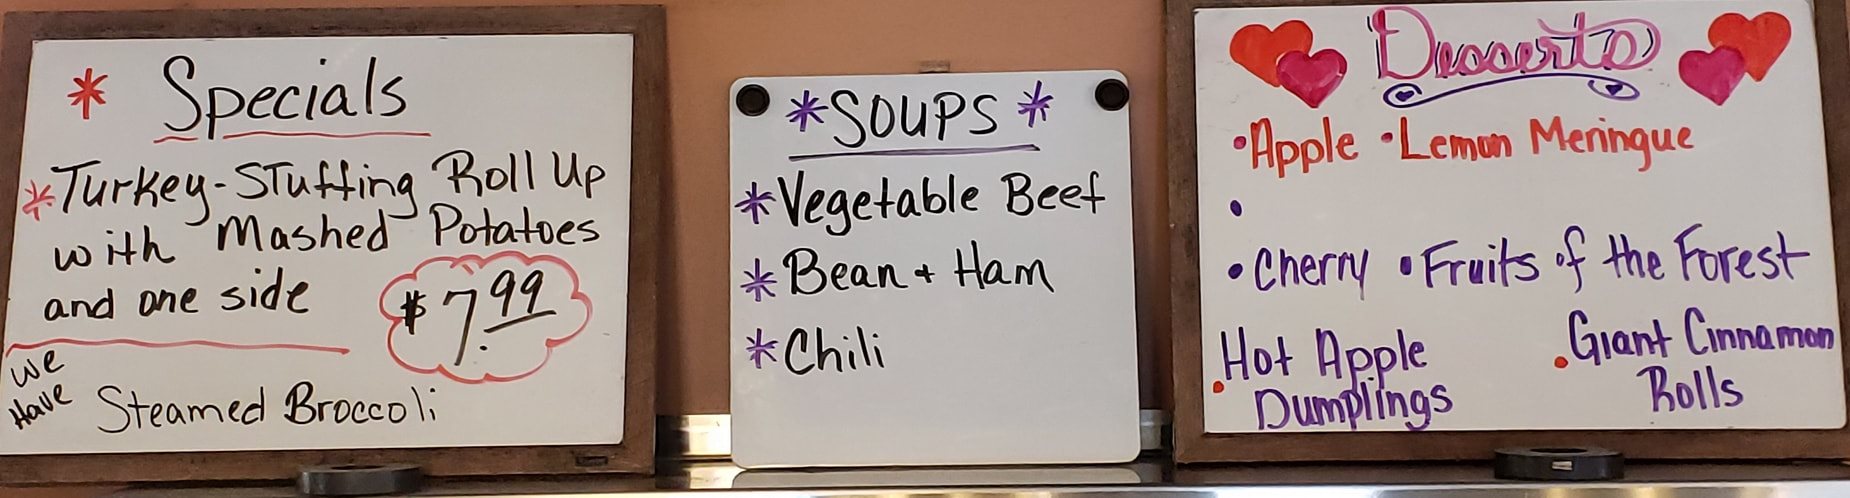 * Specials
*Turkey-Stuffing Roll Up
with Mashed Potatoes
and one side
$7.99
We
Have
Steamed Broccoli
*SOUPS*
*Vegetable Beef
*Bean + Ham
*Chili
Desserts
•Apple •Lemon Meringue
•
•Cherry •Fruits of the Forest
•Hot Apple
Dumplings
•Giant Cinnamon
Rolls